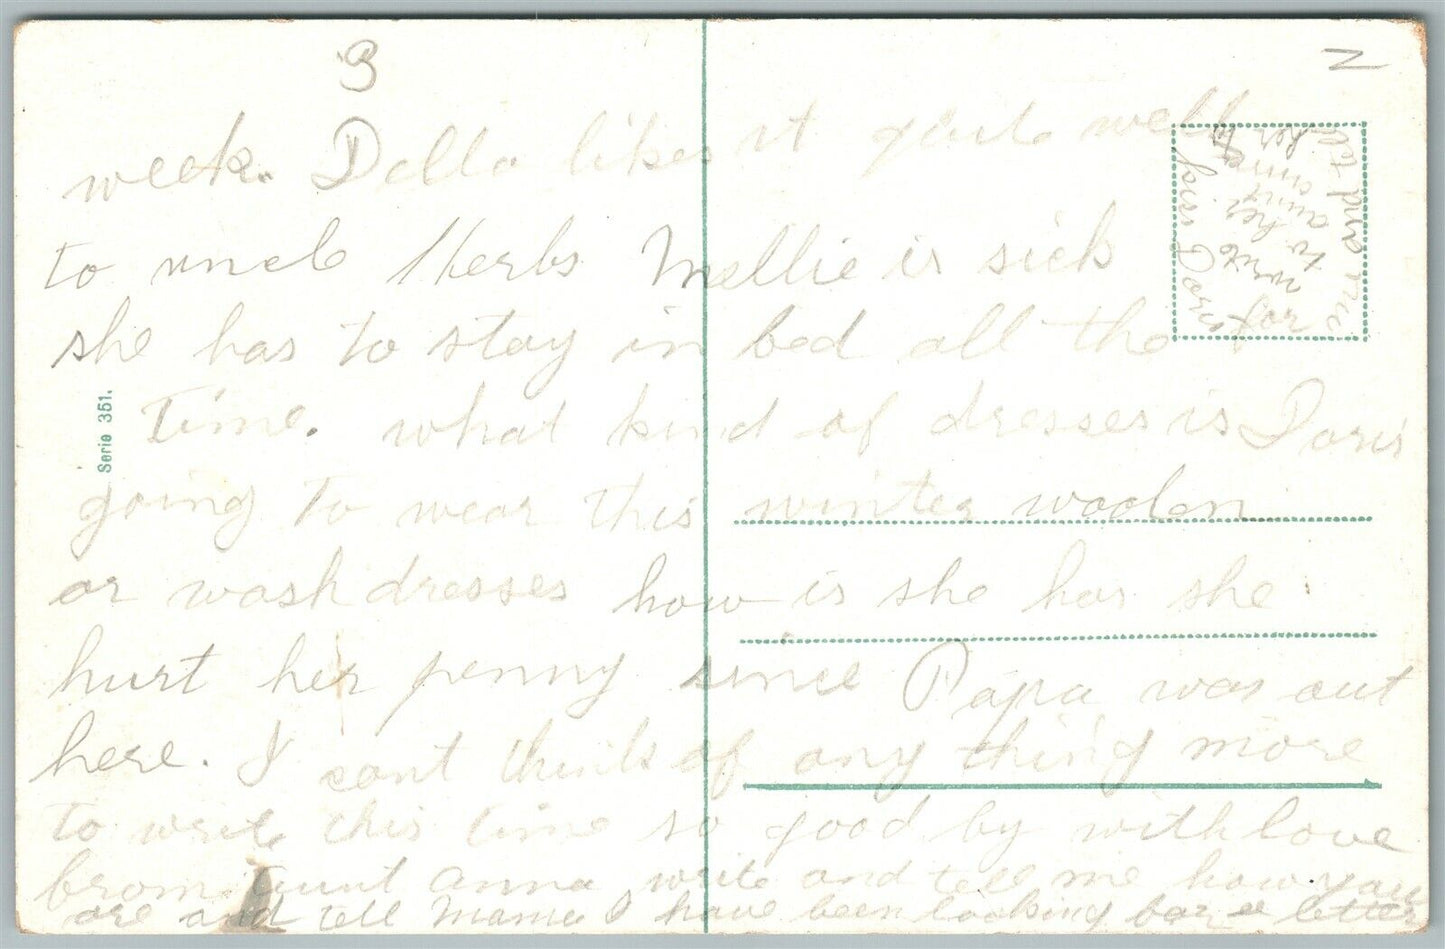 3
week. Della likes it quite well
to uncle Herbs Mellie is sick
she has to stay in bed all the
time. what kind of dresses is Doris
going to wear this winter woolen
or wash dresses how is she has she
hurt her penny since Papa was out
here. I cant think of any thing more
to write this time so good by with love
from Aunt Anna write and tell me how you
are and tell Mama I have been looking for a letter
kiss Doris for me and
write to her aunt anna
Serie 351.